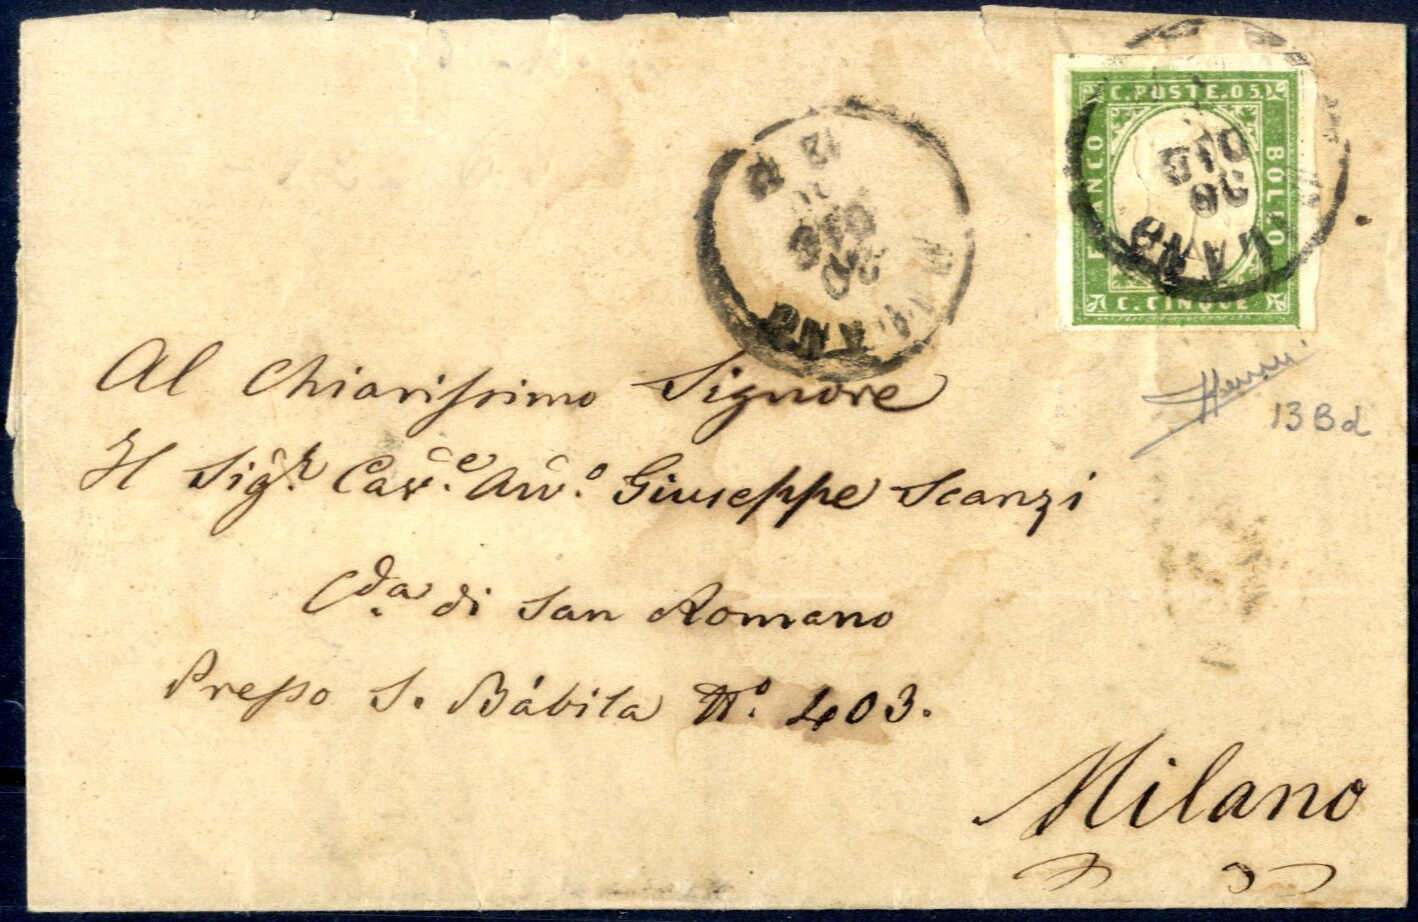 C. POSTE. 05.
FRANCO
BOLLO
C. CINQUE
MILANO
26
DIC
MILANO
DIC
12
Al Chiarissimo Signore
Il Sigr. Cave. Avvo. Giuseppe Scanzi
Cda. di San Romano
Presso S. Bábila No. 403.
Milano
13Bd